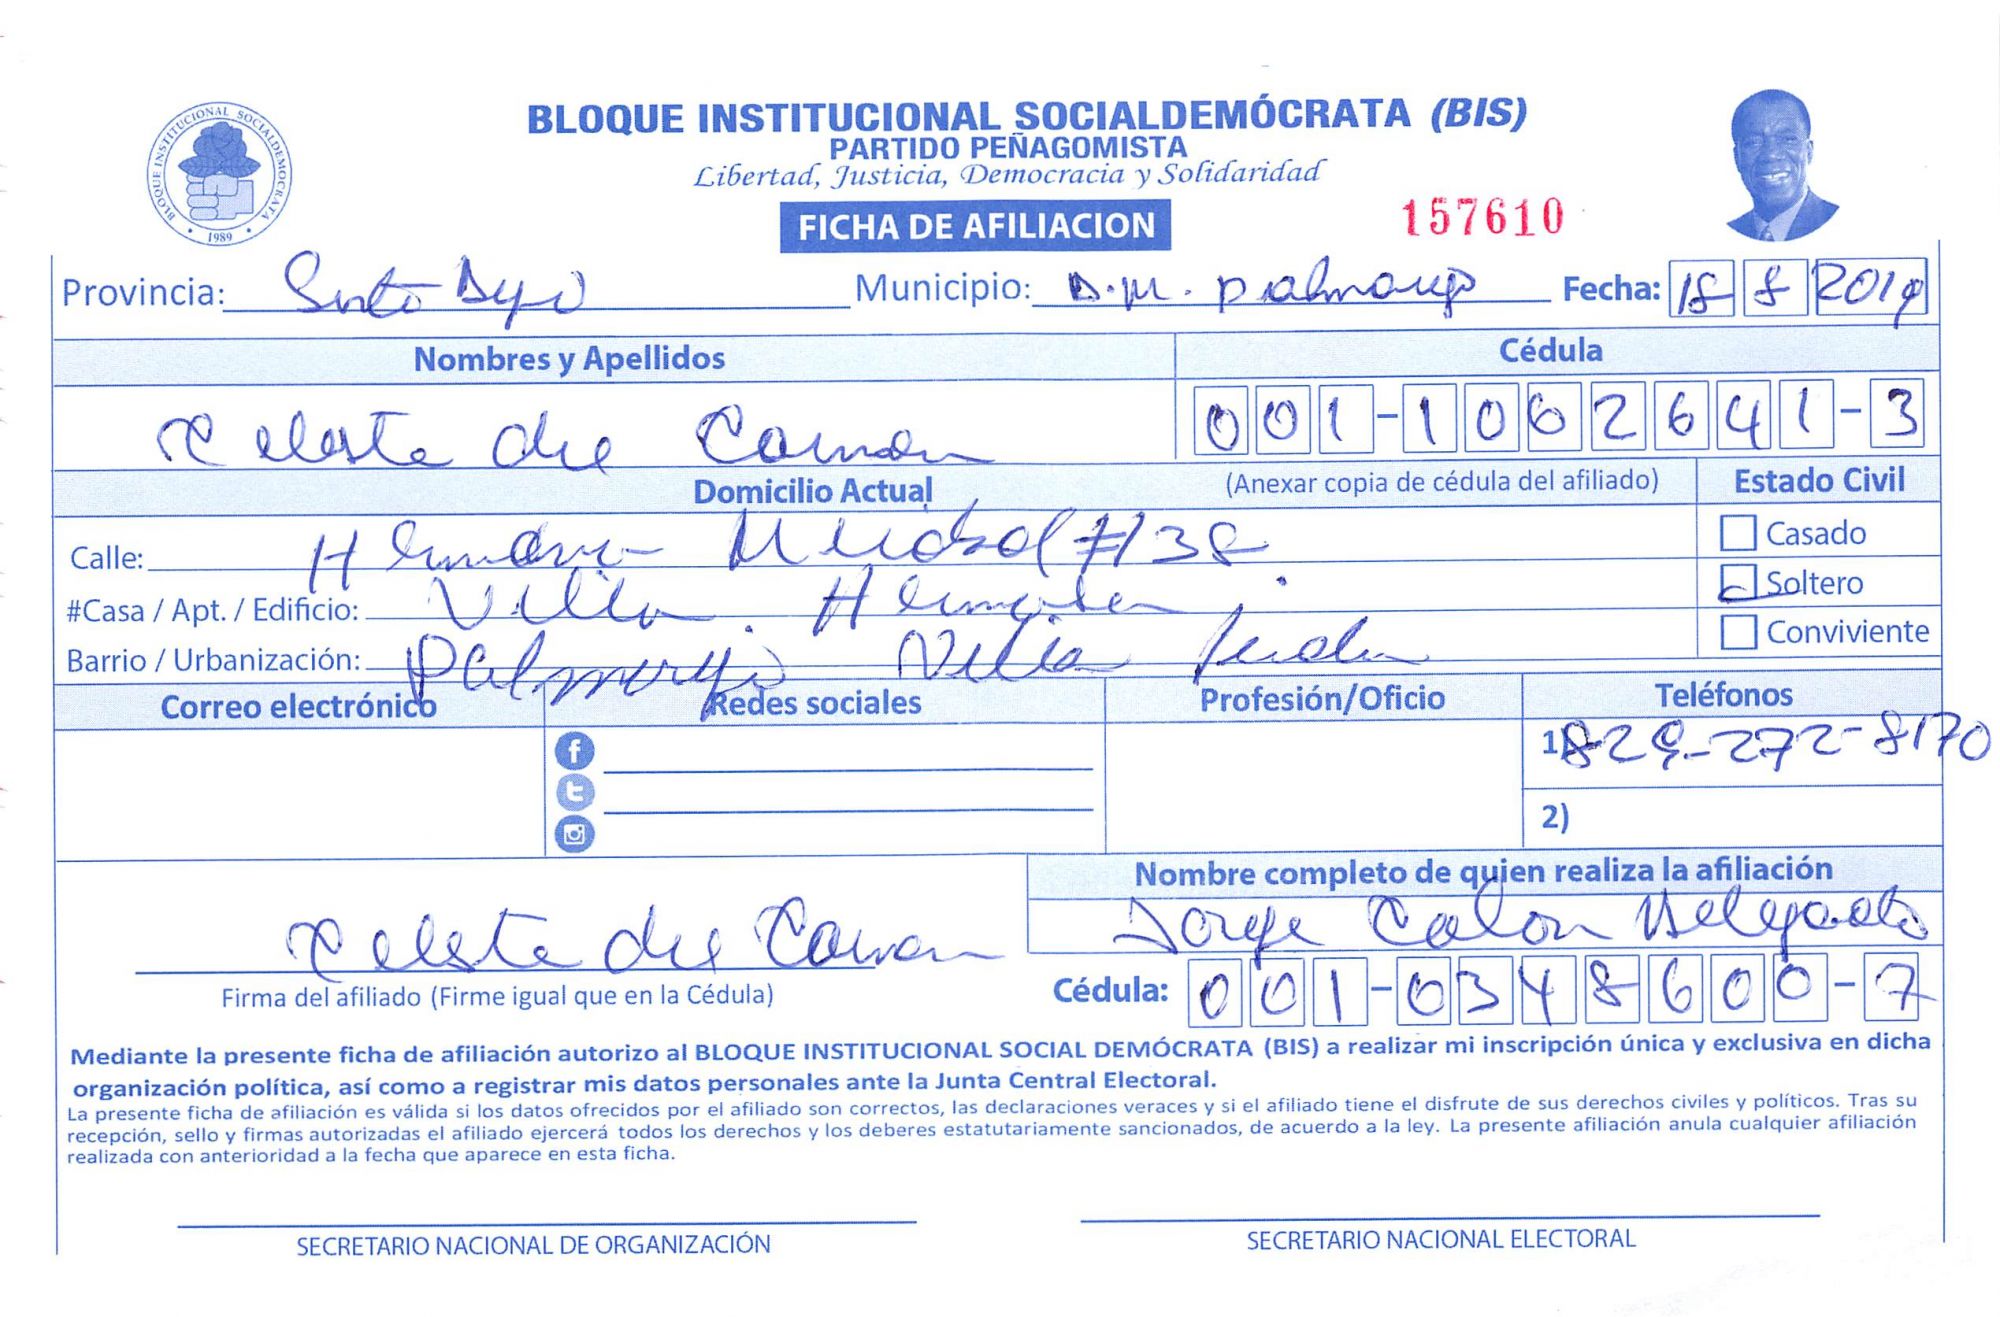 BLOQUE INSTITUCIONAL SOCIALDEMOCRATA
1989
BLOQUE INSTITUCIONAL SOCIALDEMÓCRATA (BIS)
PARTIDO PEÑAGOMISTA
Libertad, Justicia, Democracia y Solidaridad
FICHA DE AFILIACION
157610
Provincia: Santo Dgo Municipio: D.M. palmarejo Fecha: 18 8 2019
Nombres y Apellidos Cédula
Celeste de Coman 001-1062641-3
Domicilio Actual (Anexar copia de cédula del afiliado) Estado Civil
Calle: Hermana #138 Casado
#Casa / Apt. / Edificio: Villa Hermosa Soltero
Barrio / Urbanización: Palmarejo Villa Conviviente
Correo electrónico Redes sociales Profesión/Oficio Teléfonos
1) 829-272-8170
2)
Nombre completo de quien realiza la afiliación
Celeste Jorge Colon Delgado
Firma del afiliado (Firme igual que en la Cédula) Cédula: 001-0348600-7
Mediante la presente ficha de afiliación autorizo al BLOQUE INSTITUCIONAL SOCIAL DEMÓCRATA (BIS) a realizar mi inscripción única y exclusiva en dicha
organización política, así como a registrar mis datos personales ante la Junta Central Electoral.
La presente ficha de afiliación es válida si los datos ofrecidos por el afiliado son correctos, las declaraciones veraces y si el afiliado tiene el disfrute de sus derechos civiles y políticos. Tras su
recepción, sello y firmas autorizadas el afiliado ejercerá todos los derechos y los deberes estatutariamente sancionados, de acuerdo a la ley. La presente afiliación anula cualquier afiliación
realizada con anterioridad a la fecha que aparece en esta ficha.
SECRETARIO NACIONAL DE ORGANIZACIÓN SECRETARIO NACIONAL ELECTORAL